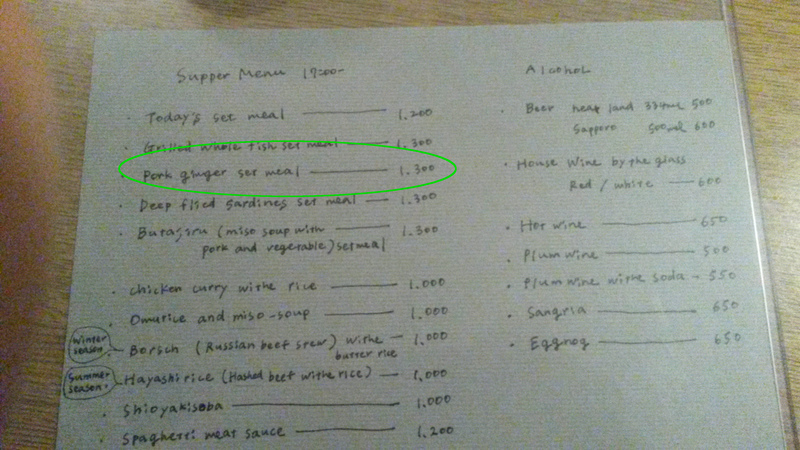 Supper Menu 17:00-
· Today's set meal 1.200
· Grilled whole fish set meal 1.300
· Pork ginger set meal 1.300
· Deep flied sardines set meal 1.300
· Butagiru (miso soup with 1.300
pork and vegetable) set meal
· chicken curry withe rice 1.000
· Omurice and miso-soup 1.000
Winter season.
· Borsch (Russian beef stew) withe 1.000
butter rice
Summer season.
· Hayashi rice (Hashed beef withe rice) 1.000
· Shioyakisoba 1.000
· Spaghetti meat sauce 1.200
Alcohol
· Beer heat land 334ml 500
Sapporo 500ml 600
· House Wine by the glass
Red / white 600
· Hot wine 650
· Plum wine 500
· Plum wine withe soda - 550
· Sangria 650
· Eggnog 650